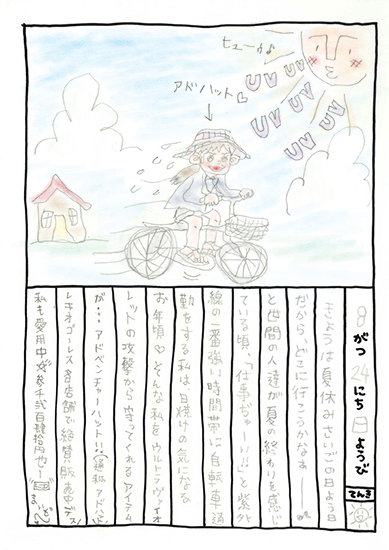 ヒューゥ♪
アドハット♡
UV UV
UV UV
UV UV
UV UV
8がつ24にち日ようび
てんき
きょうは夏休みさいごの日よう日
だから、どこに行こうかなぁ――。
と世間の人達が夏の終わりを感じ
ている頃、「仕事ぢゃーい!!」と紫外
線の一番強い時間帯に自転車通
勤をする私は日焼けの気になる
お年頃♡そんな私をウルトラヴァイオ
レットの攻撃から守ってくれるアイテム
が・・・アドベンチャーハット!!(通称アドハット)
各店舗で絶賛販売中デス
私も愛用中☆参千弐百肆拾円也〜